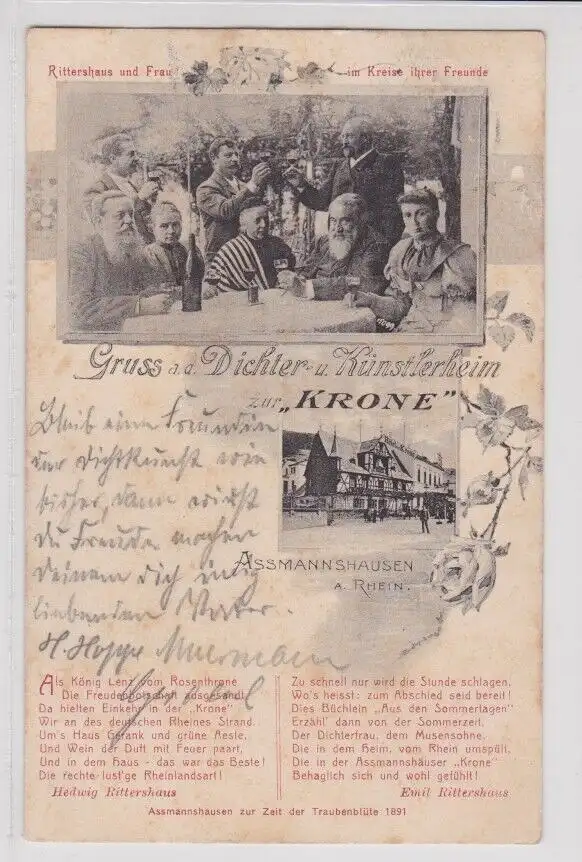 Rittershaus und Frau im Kreise ihrer Freunde
Gruss a.d. Dichter- u. Künstlerheim
zur „KRONE"
ASSMANNSHAUSEN
A. RHEIN.
Bleib eine Freundin
der Dichtkunst wie
bisher, dann wirst
du Freude machen
Deinem dich innig
liebenden Vater.
H. Hoppe
Als König Lenz vom Rosenthrone
Die Freudenbotschaft ausgesandt,
Da hielten Einkehr in der „Krone"
Wir an des deutschen Rheines Strand.
Um's Haus Gerank und grüne Aeste,
Und Wein der Duft mit Feuer paart,
Und in dem Haus - das war das Beste!
Die rechte lust'ge Rheinlandsart!
Hedwig Rittershaus
Zu schnell nur wird die Stunde schlagen,
Wo's heisst: zum Abschied seid bereit!
Dies Büchlein „Aus den Sommertagen"
Erzähl' dann von der Sommerzeit,
Der Dichterfrau, dem Musensohne,
Die in dem Heim, vom Rhein umspült,
Die in der Assmannshäuser „Krone"
Behaglich sich und wohl gefühlt!
Emil Rittershaus
Assmannshausen zur Zeit der Traubenblüte 1891